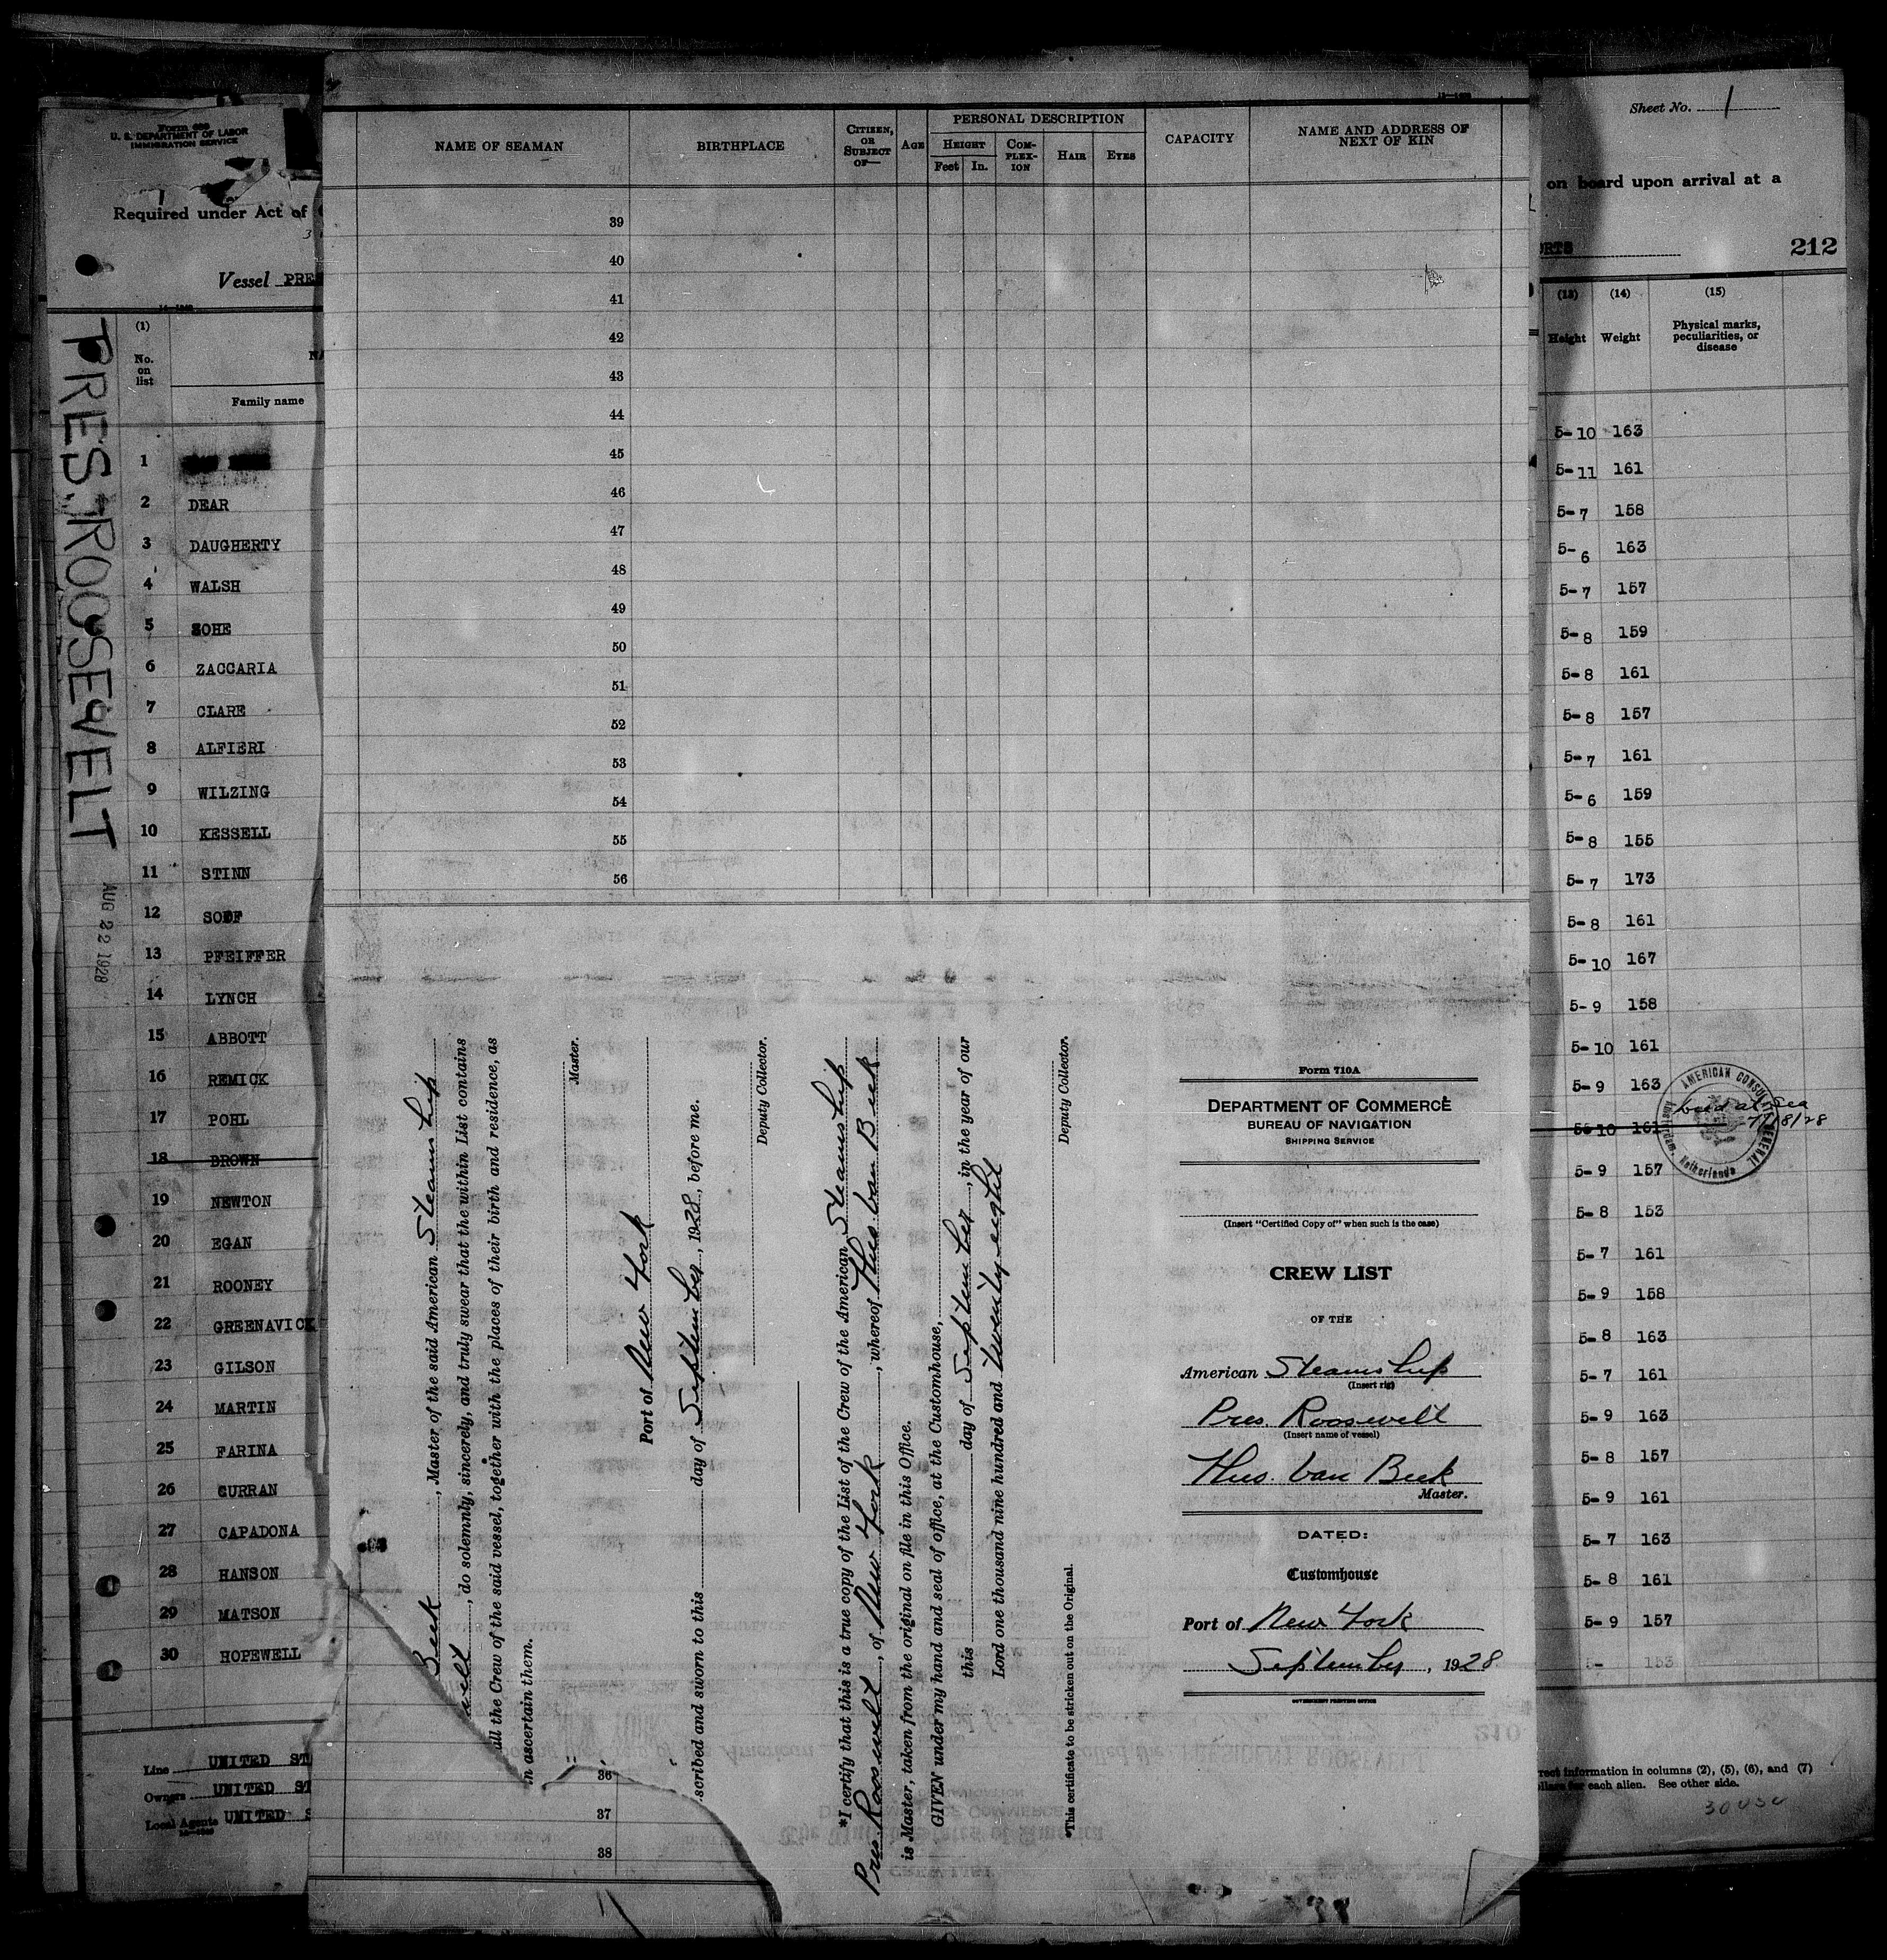 Form 689
U. S. DEPARTMENT OF LABOR
IMMIGRATION SERVICE
Required under Act of
Vessel PRE
PRES. ROOSEVELT
AUG 22 1928
(1)
No.
on
list
Family name
1
2 DEAR
3 DAUGHERTY
4 WALSH
5 SOHE
6 ZACCARIA
7 CLARE
8 ALFIERI
9 WILZING
10 KESSELL
11 STINN
12
13 PFEIFFER
14 LYNCH
15 ABBOTT
16 REMICK
17 POHL
18 BROWN
19 NEWTON
20 EGAN
21 ROONEY
22 GREENAVICK
23 GILSON
24 MARTIN
25 FARINA
26 CURRAN
27 CAPADONA
28 HANSON
29 MATSON
30 HOPEWELL
Line UNITED ST
Owners UNITED ST
Local Agents UNITED S
NAME OF SEAMAN
BIRTHPLACE
CITIZEN,
OR
SUBJECT
OF—
AGE
PERSONAL DESCRIPTION
HEIGHT
Feet In.
COM-
PLEX-
ION
HAIR
EYES
CAPACITY
NAME AND ADDRESS OF
NEXT OF KIN
39
40
41
42
43
44
45
46
47
48
49
50
51
52
53
54
55
56
Beek, Master of the said American Steamship
velt, do solemnly, sincerely, and truly swear that the within List contains
all the Crew of the said vessel, together with the places of their birth and residence, as
in ascertain them.
Master.
Port of New York
scribed and sworn to this day of September, 1928, before me.
Deputy Collector.
*I certify that this is a true copy of the List of the Crew of the American Steamship
Pres. Roosevelt, of New York, whereof Thos. Van Beek
is Master, taken from the original on file in this Office.
GIVEN under my hand and seal of office, at the Customhouse,
this day of September, in the year of our
Lord one thousand nine hundred and twenty eight
Deputy Collector.
*This certificate to be stricken out on the Original.
36
37
38
Form 710A
DEPARTMENT OF COMMERCE
BUREAU OF NAVIGATION
SHIPPING SERVICE
(Insert "Certified Copy of" when such is the case)
CREW LIST
OF THE
American Steamship
(Insert rig)
Pres. Roosevelt
(Insert name of vessel)
Thos. Van Beek
Master.
DATED:
Customhouse
Port of New York
September, 1928
GOVERNMENT PRINTING OFFICE
Sheet No. 1
on board upon arrival at a
212
(13) (14) (15)
Height Weight Physical marks,
peculiarities, or
disease
5-10 163
5-11 161
5-7 158
5-6 163
5-7 157
5-8 159
5-8 161
5-8 157
5-7 161
5-6 159
5-8 155
5-7 173
5-8 161
5-10 167
5-9 158
5-10 161
5-9 163
5-10 161
5-9 157
5-8 153
5-7 161
5-9 158
5-8 163
5-7 161
5-9 163
5-8 157
5-9 161
5-7 163
5-8 161
5-9 157
5- 153
AMERICAN CONSULATE GENERAL
Amsterdam, Netherlands
at Sea
rect information in columns (2), (5), (6), and (7)
ollars for each alien. See other side.